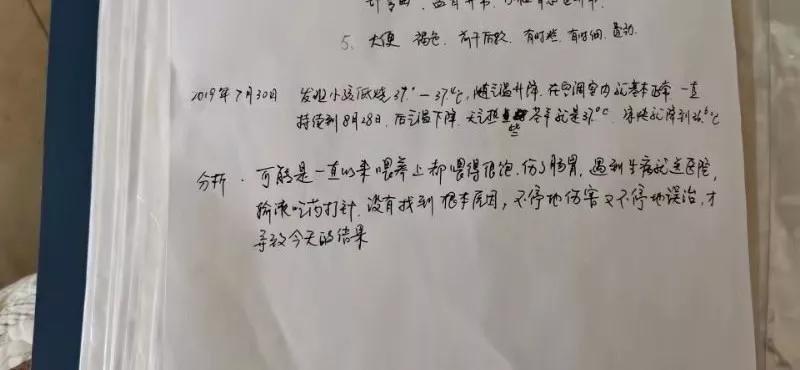 5. 大便 褐色. 前干后软. 有时粗. 有时细.
2019年7月30日 发现小孩低烧37°—37.4℃, 随气温升降. 在空调室内就基本正常 一直
持续到8月28日. 后气温下降. 天气热些 基本就是37.0℃ 凉快就降到36.8℃
分析. 可能是一直以来喂养上都喂得很饱. 伤了肠胃. 遇到生病就进医院,
输液吃药打针. 没有找到根本原因, 不停地伤害又不停地误治, 才
导致今天的结果